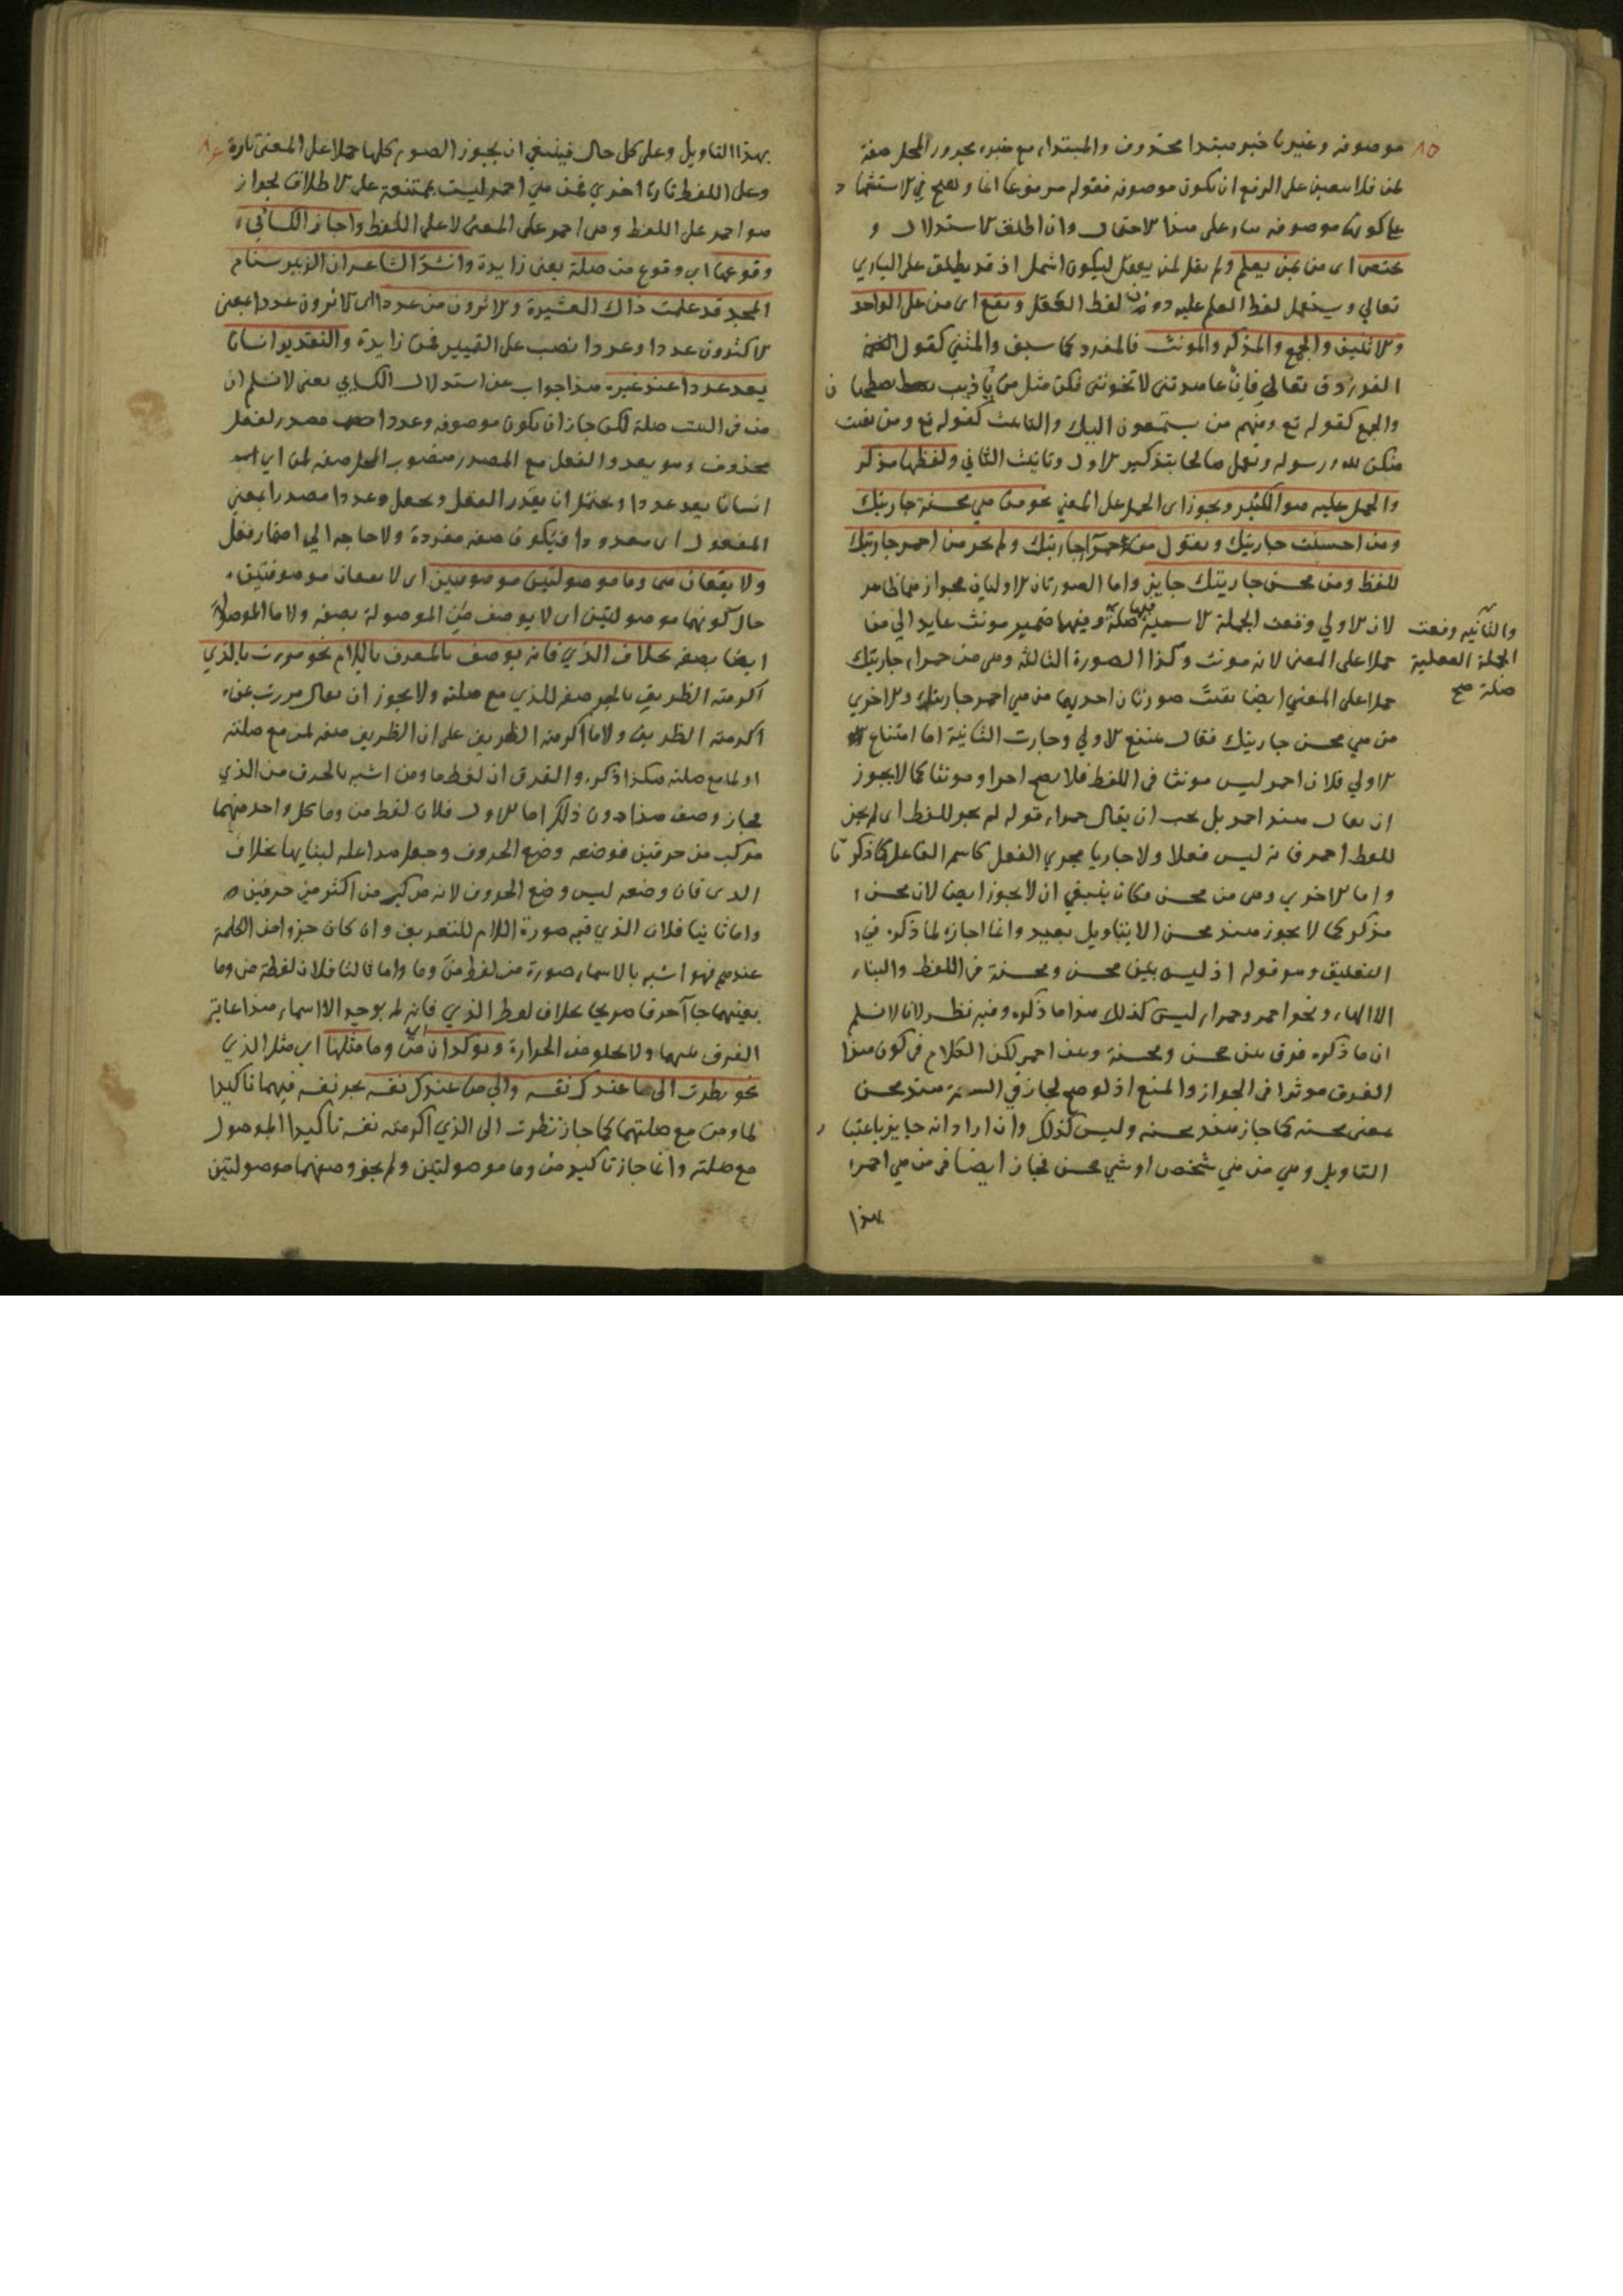 ٨٥
موصوفه وغيرنا خبر مبتدا محذوف والمبتداء مع خبره مجرور المحل صفة
لمن فلا سعين على الرفع ان يكون موصوفه فقوله مرفوعا اغا وتصح في الاستشها د
على كونها موصوفه بناء على هذا الاحتمال وان اطلق الاستدلال و
يختص اى من بمن يعلم ولم يقل لمن يعقل ليكون اشمل اذ قد يطلق على الباري
تعالي ويستعمل لفظ العلم عليه دون لفظ العقل ويقع اى من على الواحد
والاثنين والجمع والمذكر والمونث فالمفرد كما سبق والمثني كقول
الفرزدق تعالي فان عاهدتنى لا تخوننى نكن مثل من يا ذيب يصطحبا ن
والجمع كقوله تع ومنهم من يستمعون اليك والتانيث كقوله تع ومن يقنت
منكن لله ورسوله وتعمل صالحا بتذكير الاول وتانيث الثاني ولفظها مذكر
والحمل عليه هو الكثير ويجوز اى الحمل على المعني نحو من هي محسنة جاريتك
ومن احسنت جاريتك وتقول من حمراء جاريتك ولم يجز من احمر جاريتك
للفظ ومن محسن جاريتك جايز واما الصورتان الاوليان فجوازهما ظاهر
لان الاولي وقعت الجملة الاسمية فيها صلة وفيها ضمير مونث عايد الي من
والثانيه وقعت
الجملة الفعلية
صلة صح
حملا على المعنى لانه مونث وكذا الصورة الثالثة وهى من حمراء جاريتك
حملا على المعني ايضا بقيت صورتان احديهما من هي احمر جاريتك والاخري
من هي محسن جاريتك فقال يمتنع الاولي وجازت الثانية اما امتناع
الاولي فلان احمر ليس مونثا فى اللفظ فلا يصح احمرا ومونثا كما لا يجوز
ان يقال هند احمر بل يجب ان يقال حمراء قوله لم يجز للفظ اى لم يجز
للفظ احمر فانه ليس فعلا ولا جاريا مجري الفعل كاسم الفاعل كما ذكر نا
واما الاخري وهى من محسن فكان ينبغي ان لا يجوز ايضا لان محسن
مذكر كما لا يجوز هند محسن الا بتاويل بعيد وانما اجازه لما ذكره في
التعليق وهو قوله اذ ليس بين محسن ومحسنة فى اللفظ والبناء
الا الهاء ونحو احمر وحمراء ليس كذلك هذا ما ذكره وفيه نظر لانا لا نسلم
ان ما ذكره فرق بين محسن ومحسنة وبين احمر لكن الكلام فى كون هذا
الفرق موثرا فى الجواز والمنع اذ لو صح لجاز في السعة هند محسن
بمعنى محسنه كما جاز هند محسنه وليس كذلك وان اراد انه جايز باعتبا ر
التاويل وهي من هي شخص او شي محسن فجاز ايضا فى من هي احمر
بهذا
٨٦
بهذا التاويل وعلى كل حال فينبغي ان يجوز الصور كلها حملا على المعنى تارة
وعلى اللفظ تارة اخري فمن هي احمر ليست بممتنعة على الاطلاق لجواز
هو احمر على اللفظ وهى احمر على المعنى لا على اللفظ واجاز الكسائي
وقوعها اى وقوع من صلة يعنى زايدة وانشد الشاعر ان الزبير سنام
المجد قد علمت ذاك العشيرة والاثرون من عددا اى الاثرون عددا بمعنى
الاكثرون عددا وعددا نصب على التمييز فمن زايدة والتقدير انسانا
يعد عددا عند غيره هذا جواب عن استدلال الكسايي يعنى لا نسلم ان
من فى البيت صلة لكن جاز ان يكون موصوفه وعددا مصدر لفعل
محذوف وهو يعد والفعل مع المصدر منصوب المحل صفه لمن اى
انسانا يعد عددا ويحتمل ان يقدر الفعل ويجعل وعددا مصدرا بمعني
المفعول اى معدودا فيكون صفه مفردة ولا حاجه الي اضمار فعل
ولا يقعان من وما موصولتين موصوفين اى لا يقعان موصوفتين
حال كونهما موصولتين اى لا يوصف من الموصولة بصفه ولا ما الموصولة
ايضا بصفه بخلاف الذي فانه يوصف بالمعرف باللام نحو مررت بالذي
اكرمته الظريف بالجر صفه للذي مع صلته ولا يجوز ان يقال مررت بمن
اكرمته الظريف ولا ما اكرمته الظريف على ان الظريف صفه لمن مع صلته
او لما مع صلته هكذا ذكره والفرق ان لفظ ما ومن اشبه بالحرف من الذي
فجاز وصف هذا دون ذلك اما الاول فلان لفظ من وما كل واحد منهما
مركب من حرفين فوضعه وضع الحروف وجعل هذا علة لبنايهما بخلاف
الذى فان وضعه ليس وضع الحروف لانه مركب من اكثر من حرفين
واما ثانيا فلان الذي فيه صورة اللام للتعريف وان كان جزوا من الكلمة
عندهم فهو اشبه بالاسماء صورة من لفظ من وما واما ثالثا فلان لفظة من وما
بعينهما جاآ حرفا صريحا بخلاف لفظ الذي فانه لم يوجد الا اسماء هذا غاية
الفرق بينهما ولا يخلو من الحزازة ويوكدان اى من وما مثلها اى مثل الذي
نحو نظرت الى ما عندك نفسه والي من عندك نفسه بجر نفسه فيهما تاكيدا
لما ومن مع صلتهما كما جاز نظرت الى الذي اكرمته نفسه تاكيدا الموصول
مع صلته وانما جاز تاكيد من وما موصولتين ولم يجز وصفهما موصولتين